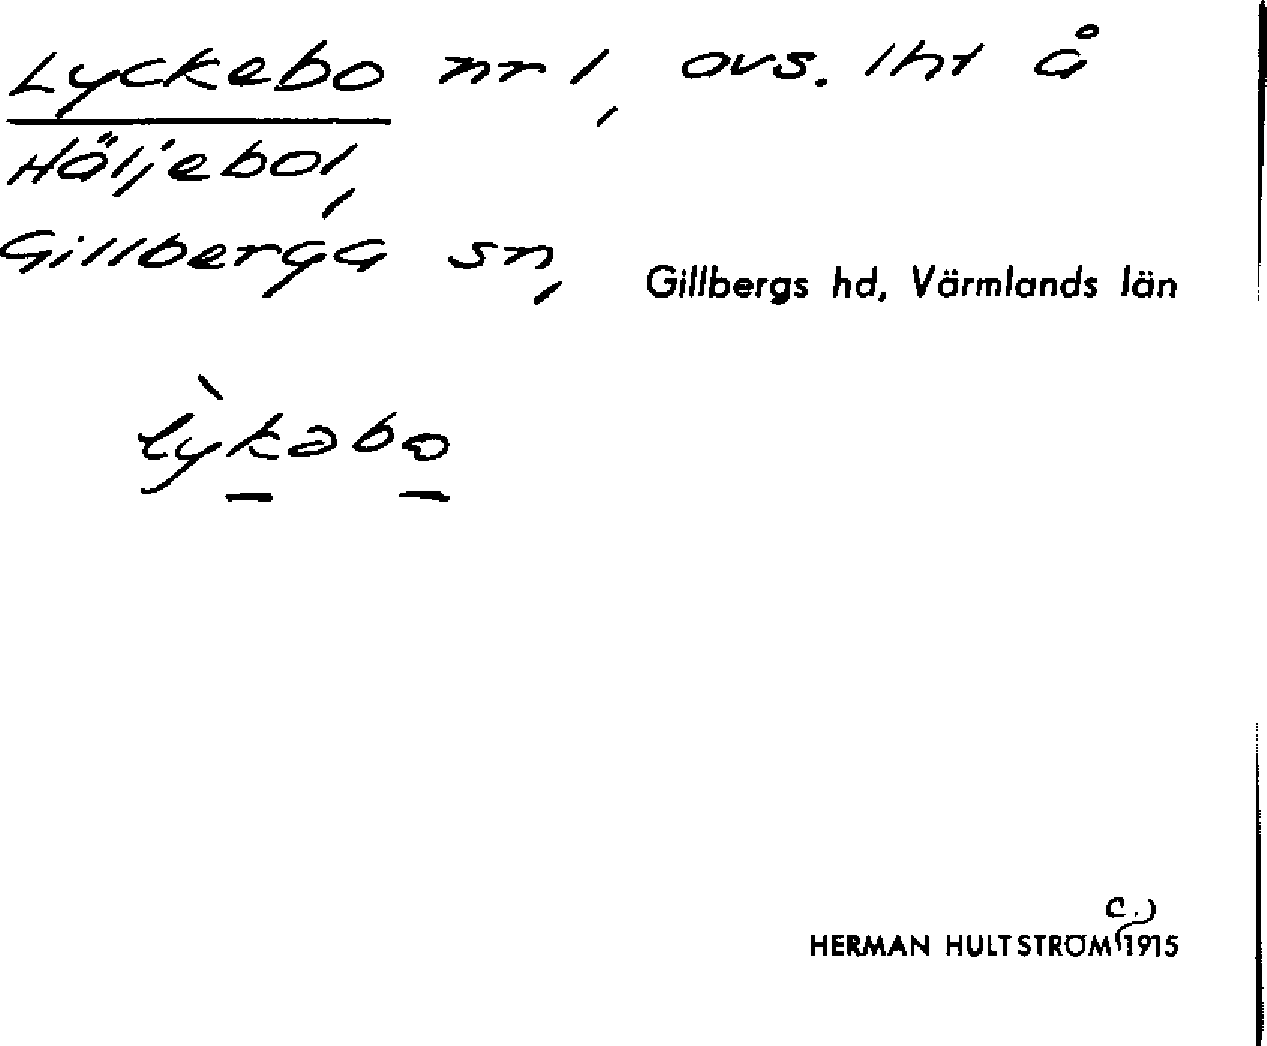 Lyckebo nr 1, avs. lht å
Häljebol,
Gillberga sn, Gillbergs hd, Värmlands län
lỳkabo
c.
HERMAN HULTSTRÖM 1915